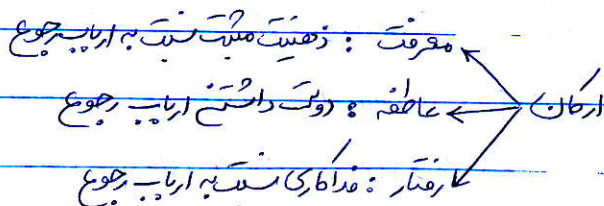 معرفت : ذهنیت مثبت نسبت به ارباب رجوع
ارکان عاطفه : دوست داشتن ارباب رجوع
رفتار : فداکاری نسبت به ارباب رجوع